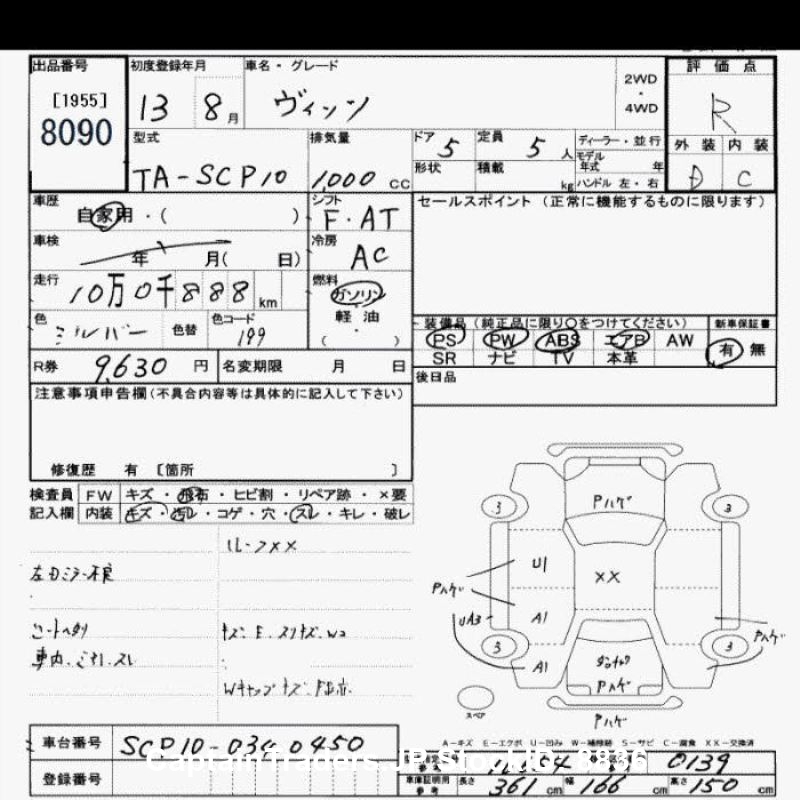 出品番号 初度登録年月 車名・グレード 2WD・4WD 評価点
[1955]
8090 13 8月 ヴィッツ R
型式 排気量 ドア 5 定員 5 人 ディーラー・並行 外装 内装
TA-SCP10 1,000 cc 形状 積載 kg モデル年式 年 ハンドル 左・右 D C
車歴 自家用・( ) シフト F・AT セールスポイント (正常に機能するものに限ります)
車検 年 月( 日) 冷房 AC
走行 10万0千888 km 燃料 ガソリン
色 シルバー 色替 色コード 199 軽油 ( )
装備品 (純正品に限り○をつけてください) 新車保証書
PS PW ABS エアB AW 有 無
SR ナビ TV 本革
R券 9,630 円 名変期限 月 日 後日品
注意事項申告欄(不具合内容等は具体的に記入して下さい)
修復歴 有 〔箇所 〕
検査員 FW キズ・飛石・ヒビ割・リペア跡・×要
記入欄 内装 キズ・汚レ・コゲ・穴・スレ・キレ・破レ
ルーフXX
左ドミラー不良
シートヘタリ
車内.ゴミ.スレ
Pハゲ
3 3
U1 XX
Pハゲ
UA3 A1 Pハゲ
3 3
A1
Pハゲ
スペア Pハゲ
A-キズ E-エクボ U-凹み W-補修跡 S-サビ C-腐食 XX-交換済
車台番号 SCP10-0340450
CaptainTraders.JP StockID: 8836
0139
登録番号 車庫証明用参考 長さ 361 cm 幅 166 cm 高さ 150 cm